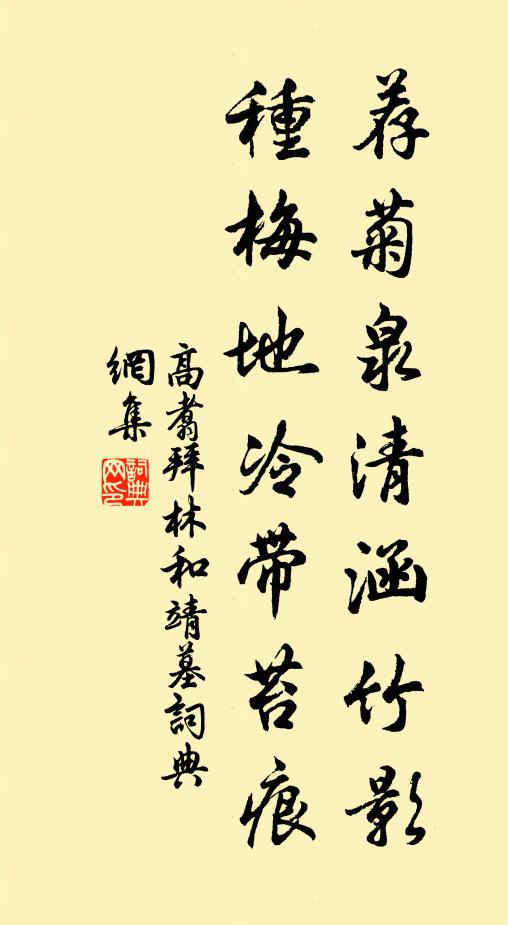 荐菊泉清涵竹影
種梅地冷帶苔痕
高翥拜林和靖墓詞典
網集
詞典
网印